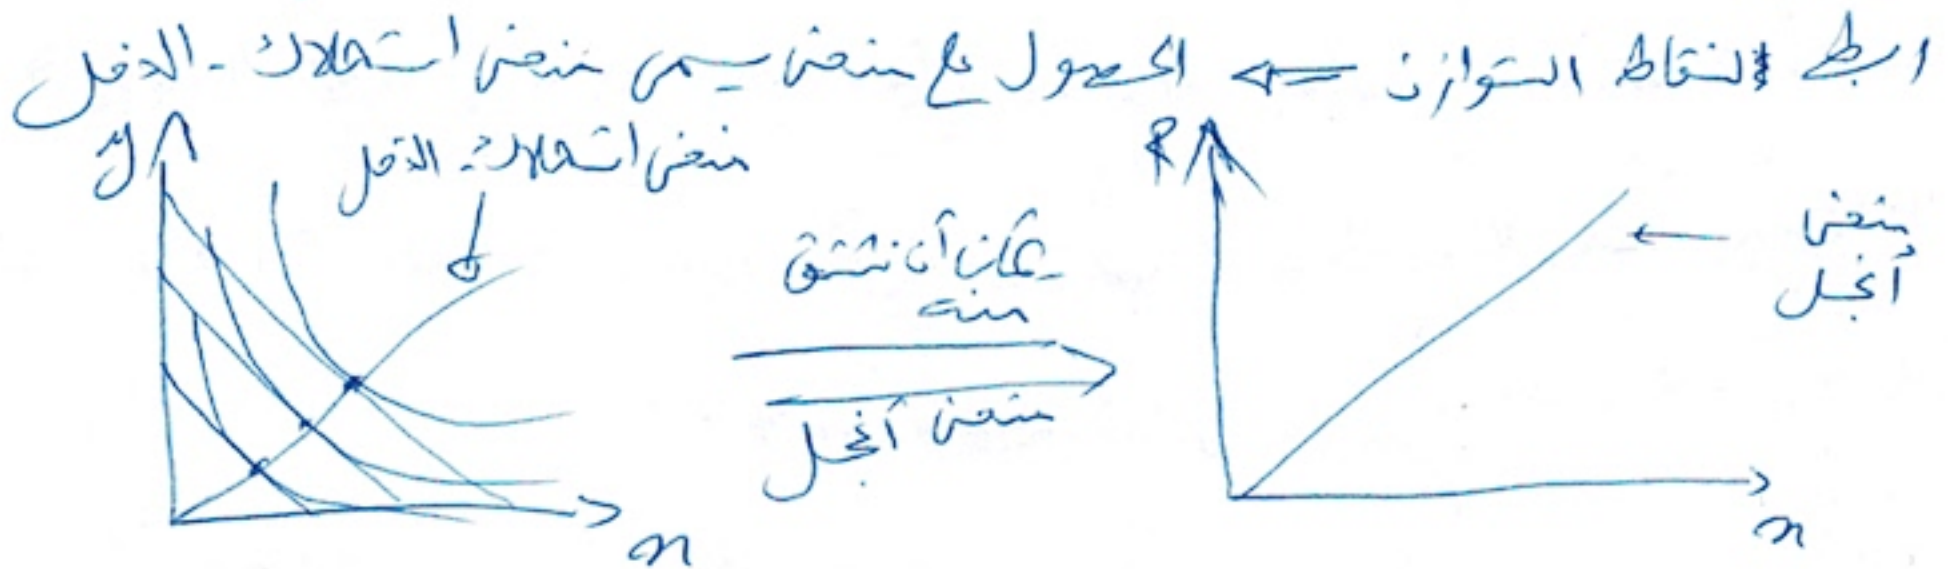 ربط النقاط التوازن ⇐ الحصول على منحنى يسمى منحنى استهلاك - الدخل
y
منحنى استهلاك - الدخل
R
يمكن أن نشتق
منه
منحنى أنجل
منحنى
أنجل
x
x